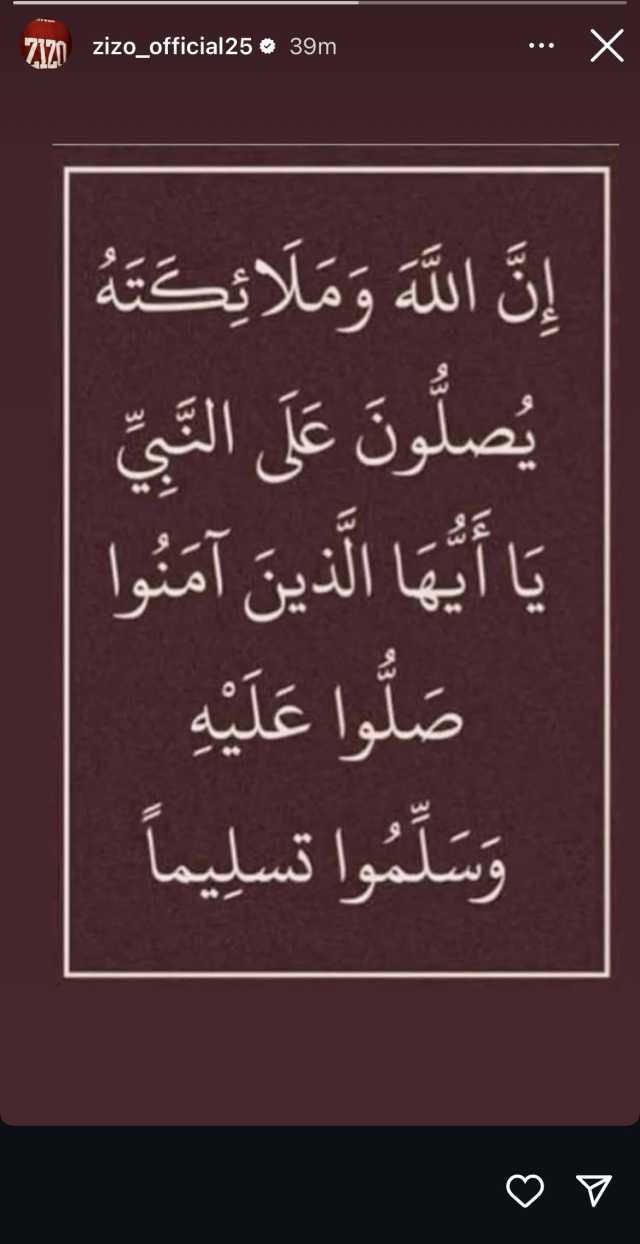 ZIZO zizo_official25 39m
إِنَّ اللَّهَ وَمَلَائِكَتَهُ
يُصلُّونَ عَلَى النَّبِيِّ
يَا أَيُّهَا الَّذينَ آمَنُوا
صَلُّوا عَلَيْهِ
وَسَلِّمُوا تسلِيماً